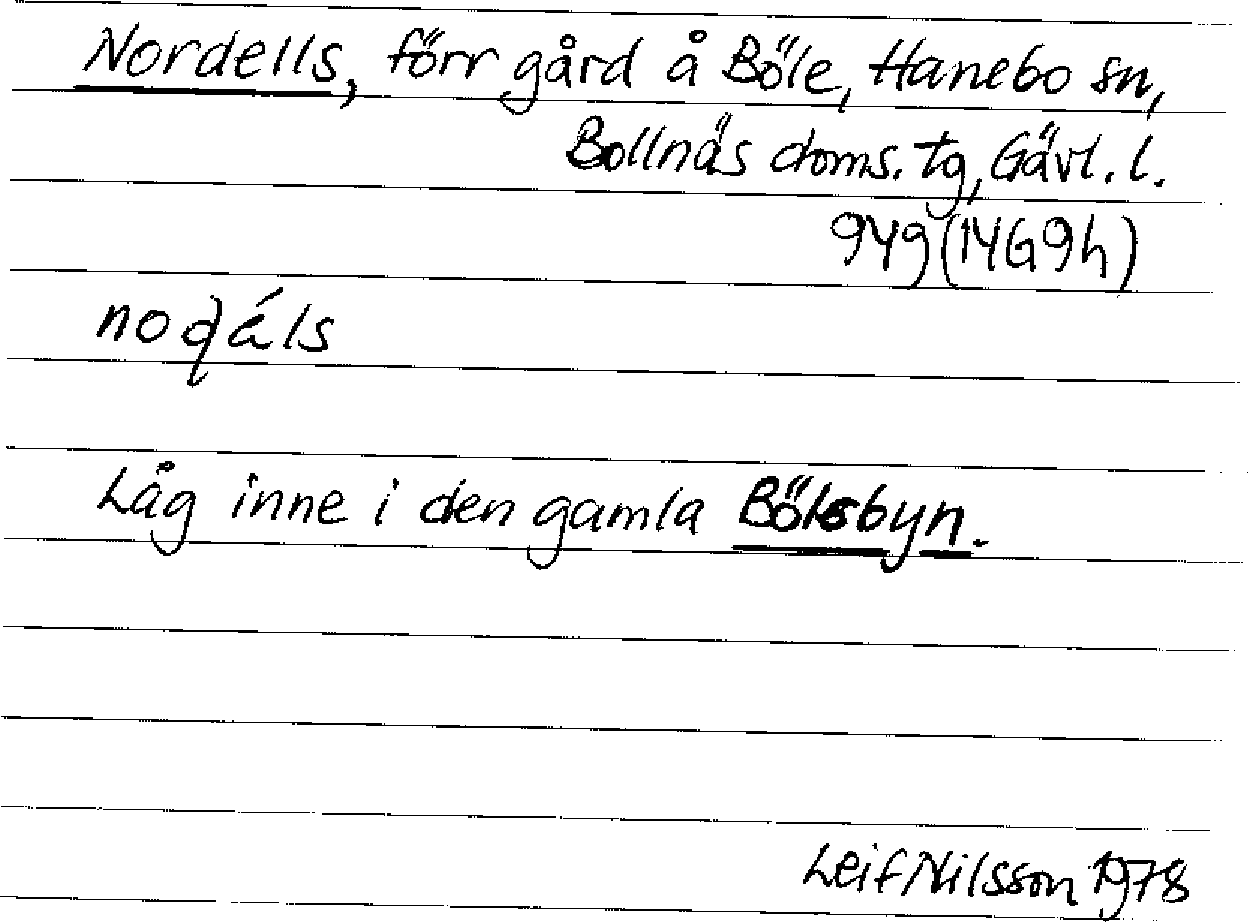 Nordells, förr gård å Böle, Hanebo sn,
Bollnäs doms. tg, Gävl. l.
94g (14G9h)
Låg inne i den gamla Bölesbyn.
Leif Nilsson 1978